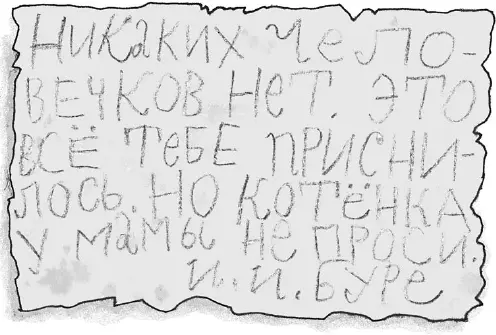 Никаких чело-
вечков нет. Это
всё тебе присни-
лось. Но котёнка
у мамы не проси.
И. И. Буре